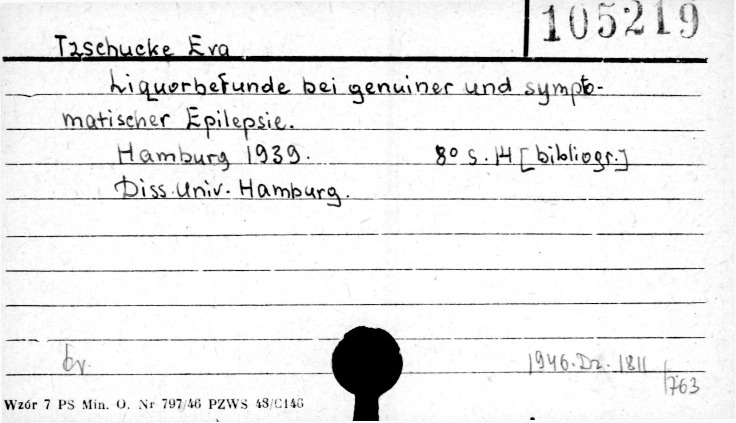 105219
Tzschucke Eva
Liquorbefunde bei genuiner und sympto-
matischer Epilepsie.
Hamburg 1939. 8º S. 14 [bibliogr.]
Diss. Univ. Hamburg.
br.
1946. Dz. 1811
/763
Wzór 7 PS Min. O. Nr 797/46 PZWS 48/C146